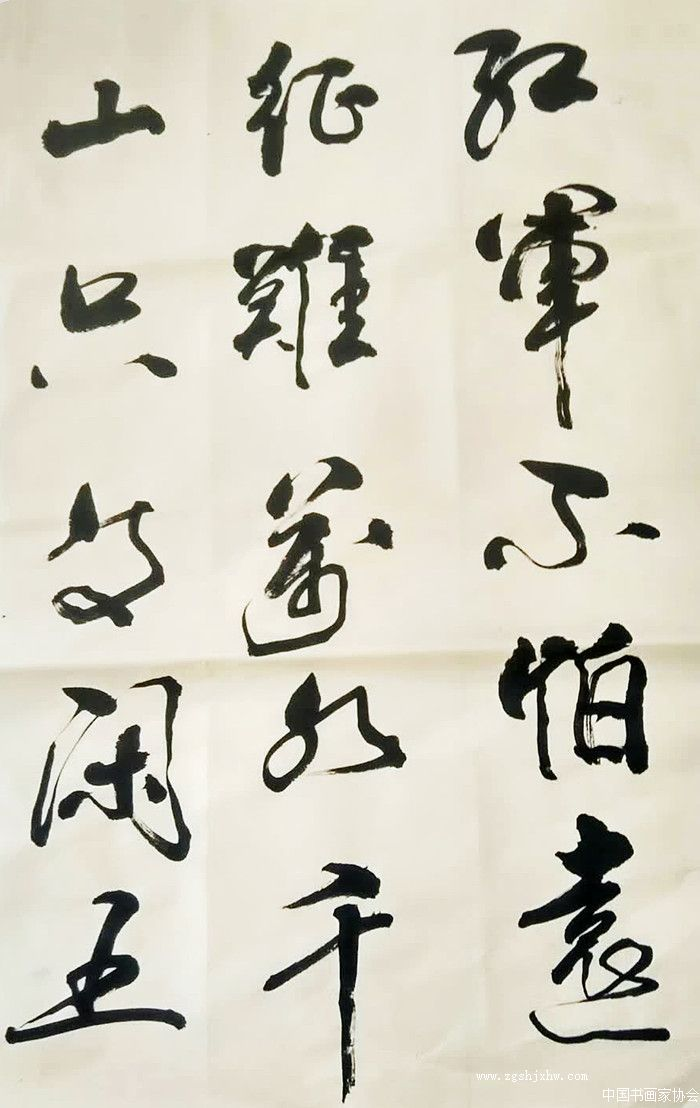 红军不怕遠
征難萬水千
山只等闲五
www.zgshjxhw.com
中国书画家协会